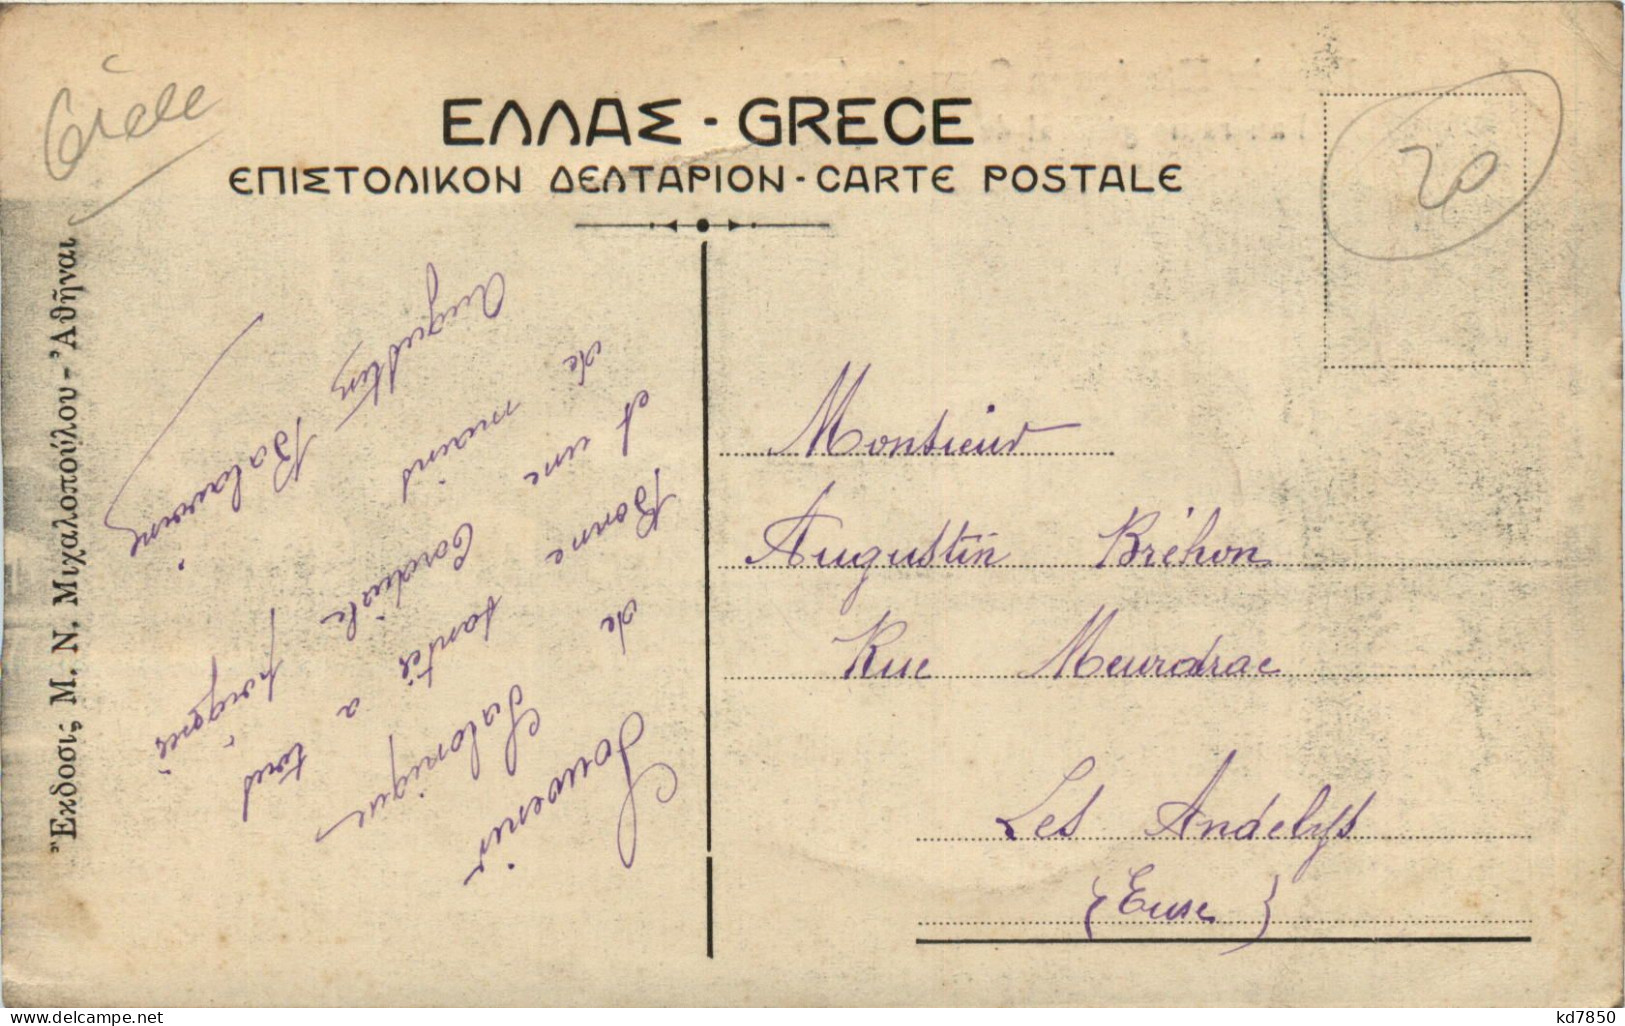 Grèce
ΕΛΛΑΣ - GRECE
ΕΠΙΣΤΟΛΙΚΟΝ ΔΕΛΤΑΡΙΟΝ - CARTE POSTALE
20
Ἔκδοσις Μ. Ν. Μιχαλοπούλου - Ἀθῆναι
Souvenir
de Salonique
Bonne santé a tous
et une Cordiale poignée
de mains
Augustin
Monsieur
Augustin Bréhon
Rue Meurdrac
Les Andelys
(Eure)
delcampe.net
kd7850